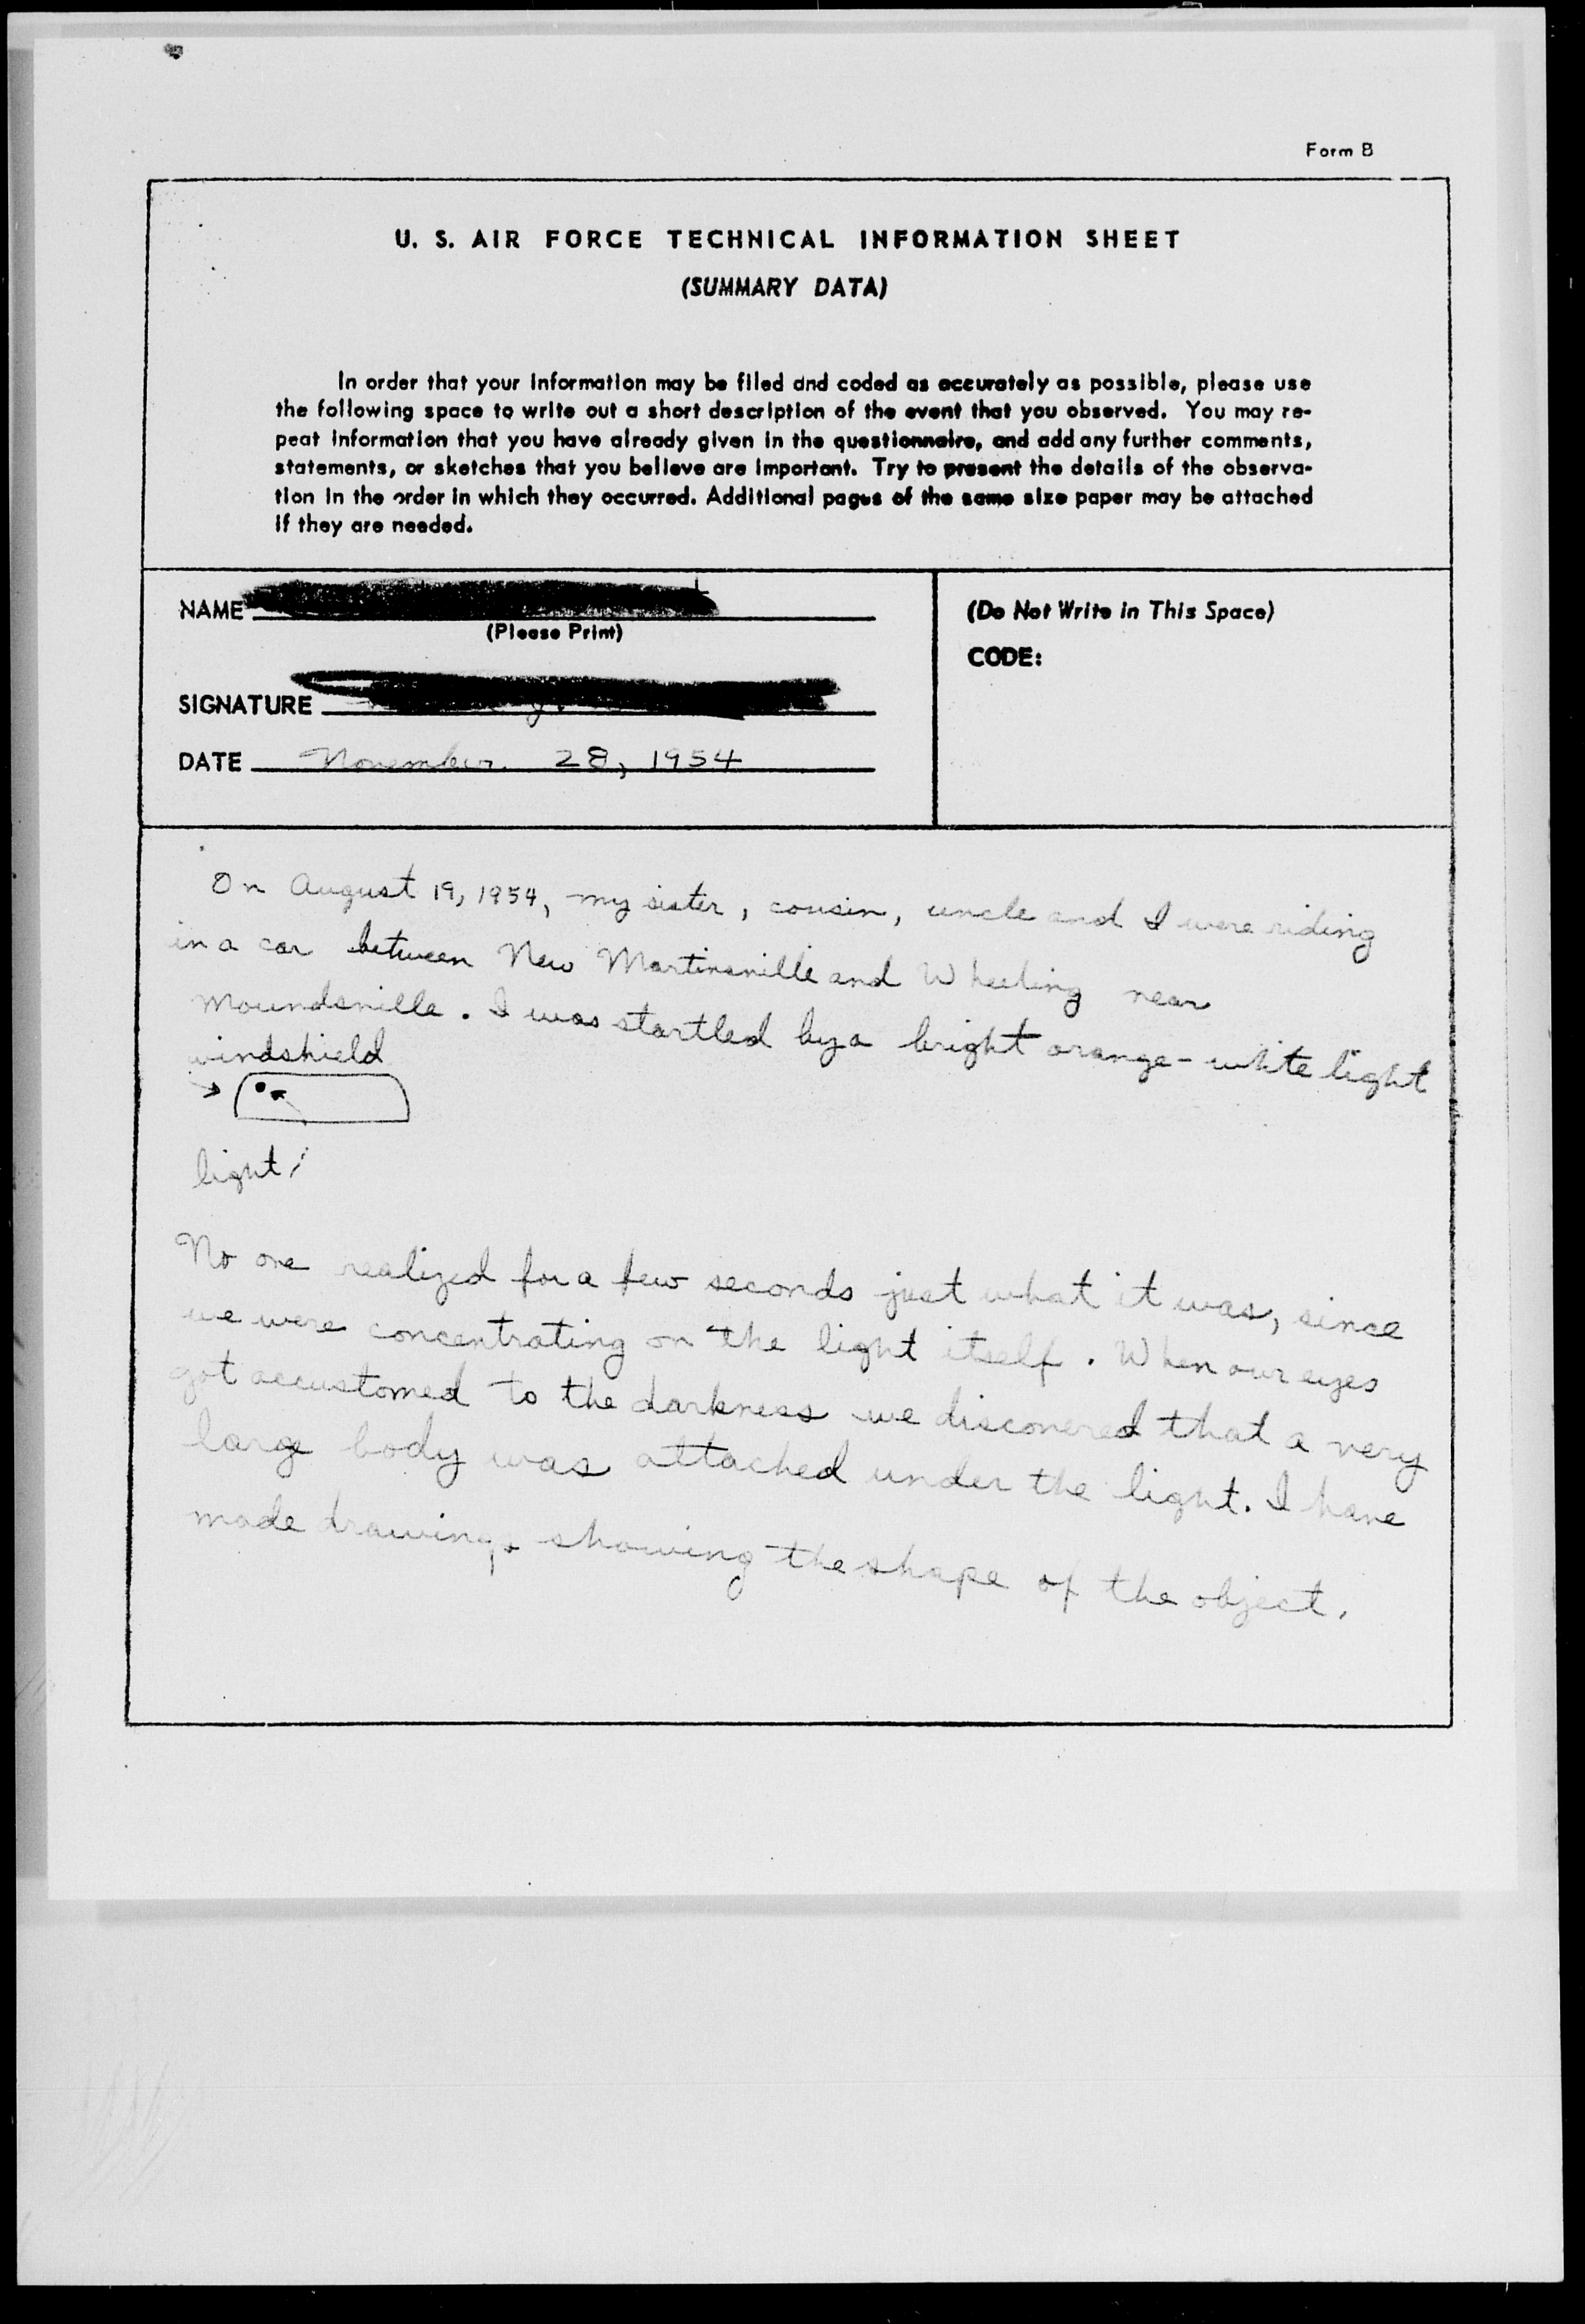 Form B
U. S. AIR FORCE TECHNICAL INFORMATION SHEET
(SUMMARY DATA)
In order that your information may be filed and coded as accurately as possible, please use
the following space to write out a short description of the event that you observed. You may re-
peat information that you have already given in the questionnaire, and add any further comments,
statements, or sketches that you believe are important. Try to present the details of the observa-
tion in the order in which they occurred. Additional pages of the same size paper may be attached
if they are needed.
NAME
(Please Print)
SIGNATURE
DATE November 28, 1954
(Do Not Write in This Space)
CODE:
On August 19, 1954, my sister, cousin, uncle and I were riding
in a car between New Martinsville and Wheeling near
Moundsville. I was startled by a bright orange-white light
windshield
light
No one realized for a few seconds just what it was, since
we were concentrating on the light itself. When our eyes
got accustomed to the darkness we discovered that a very
large body was attached under the light. I have
made drawings showing the shape of the object.